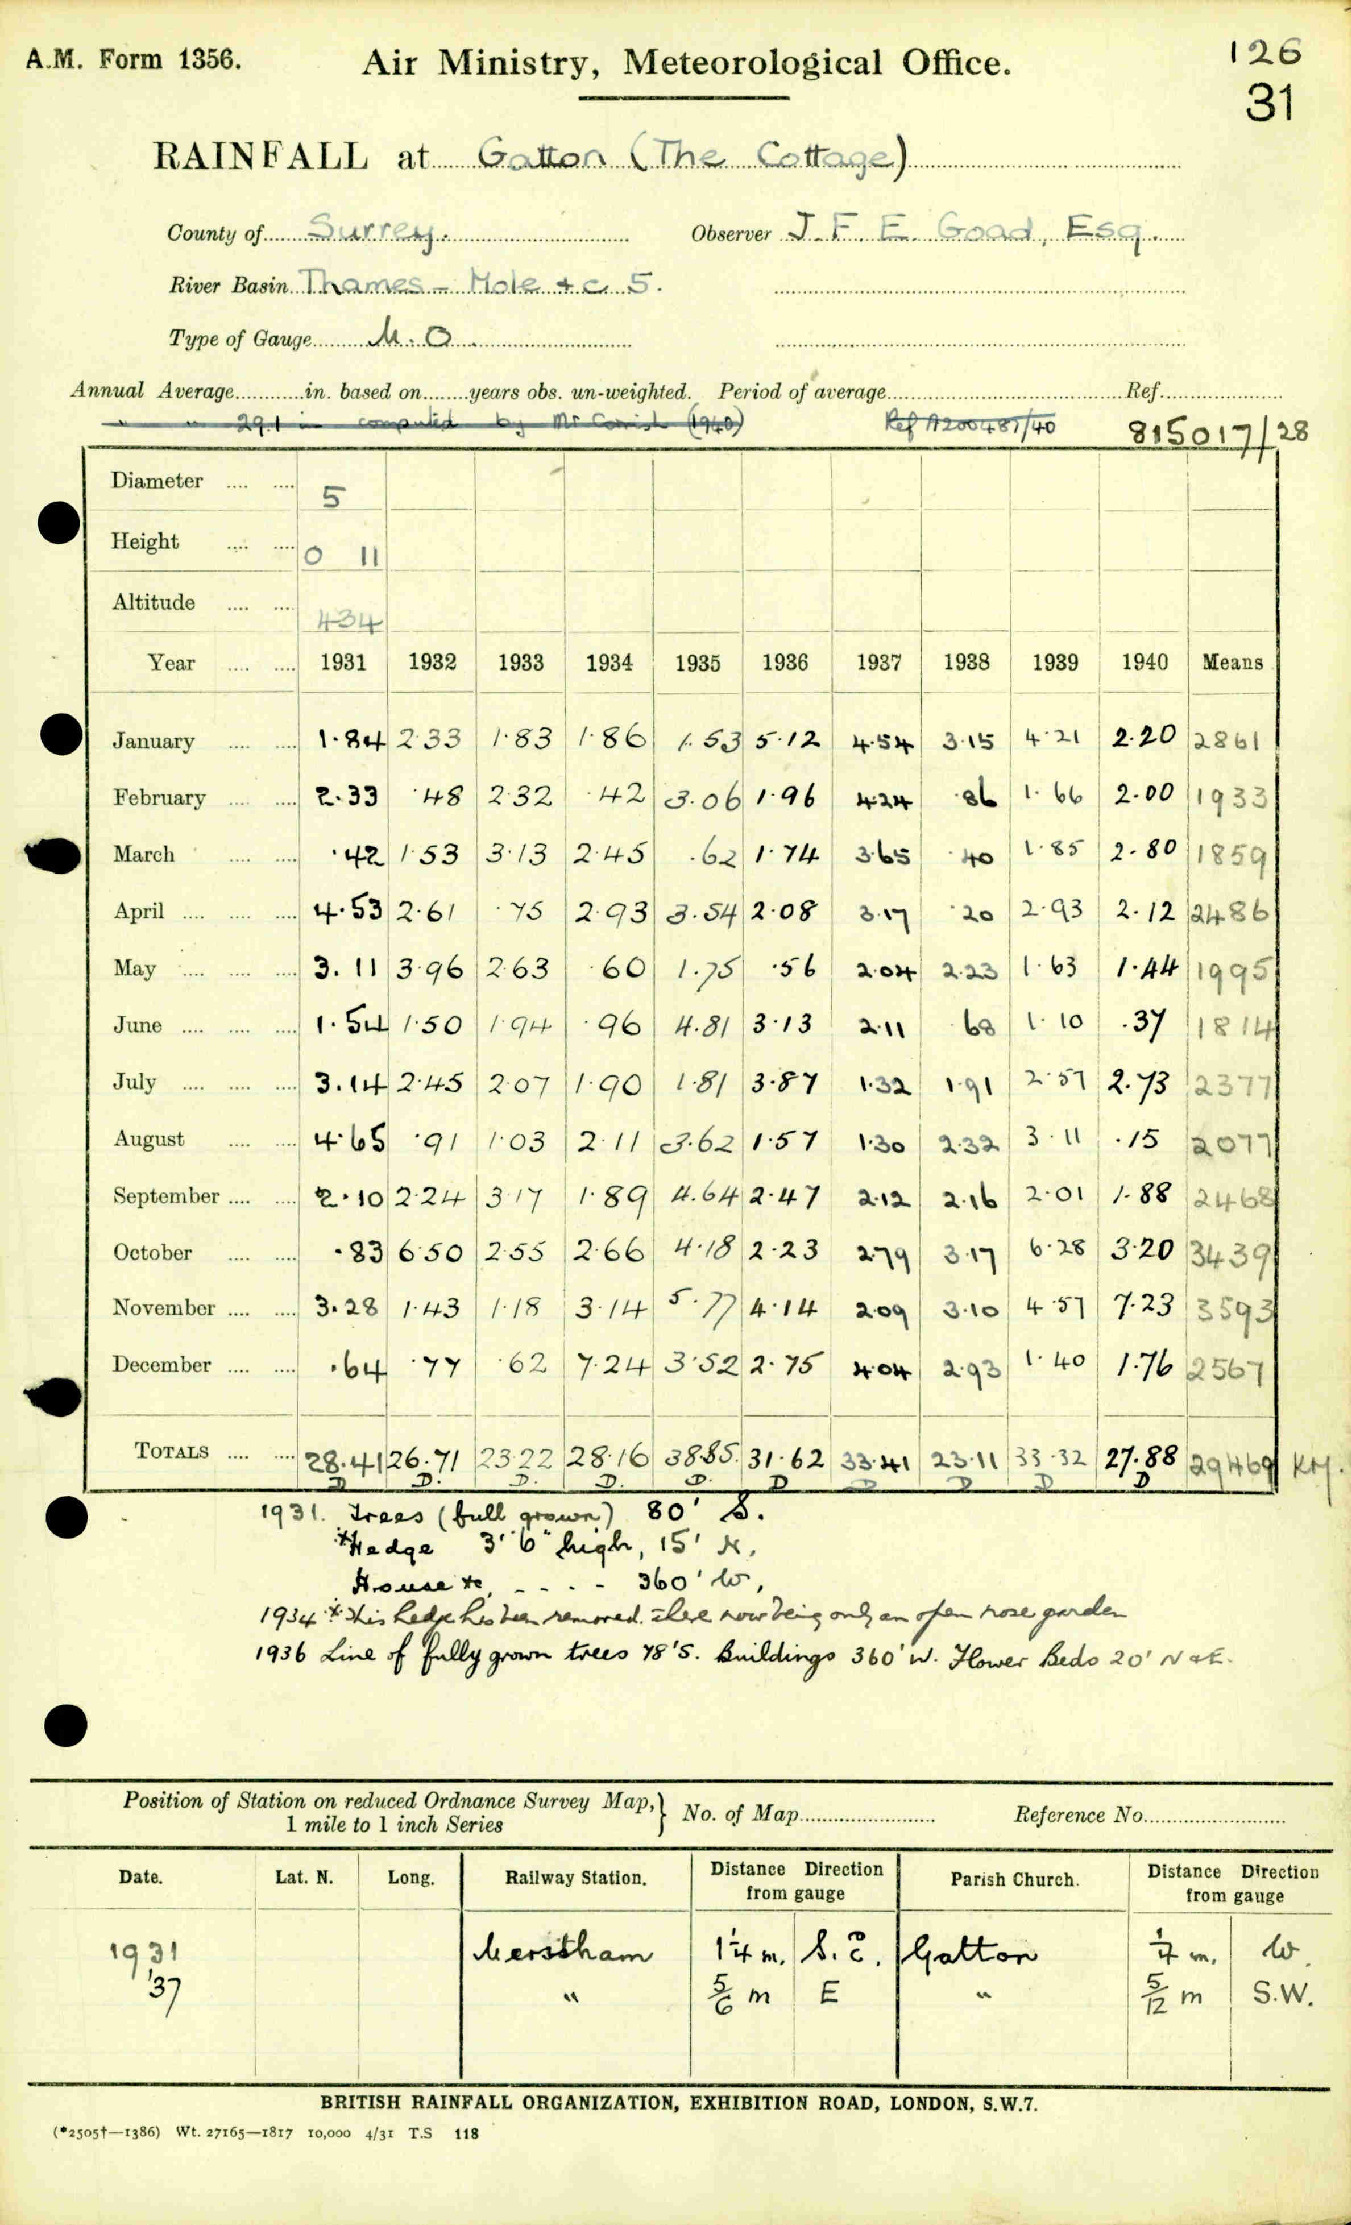 A.M. Form 1356. Air Ministry, Meteorological Office. 126
31
RAINFALL at Gatton (The Cottage)
County of Surrey. Observer J. F. E. Goad, Esq.
River Basin Thames – Mole &c 5.
Type of Gauge M.O.
Annual Average in. based on years obs. un-weighted. Period of average Ref.
" " 29.1 in computed by Mr Cornish (1940) Ref A200487/40 815017/28
Diameter 5
Height 0 11
Altitude 434
Year 1931 1932 1933 1934 1935 1936 1937 1938 1939 1940 Means
January 1.84 2.33 1.83 1.86 1.53 5.12 4.54 3.15 4.21 2.20 2861
February 2.33 .48 2.32 .42 3.06 1.96 4.24 .86 1.66 2.00 1933
March .42 1.53 3.13 2.45 .62 1.74 3.65 .40 1.85 2.80 1859
April 4.53 2.61 .75 2.93 3.54 2.08 3.17 .20 2.93 2.12 2486
May 3.11 3.96 2.63 .60 1.75 .56 2.04 2.23 1.63 1.44 1995
June 1.54 1.50 1.94 .96 4.81 3.13 2.11 .68 1.10 .37 1814
July 3.14 2.45 2.07 1.90 1.81 3.87 1.32 1.91 2.57 2.73 2377
August 4.65 .91 1.03 2.11 3.62 1.57 1.30 2.32 3.11 .15 2077
September 2.10 2.24 3.17 1.89 4.64 2.47 2.12 2.16 2.01 1.88 2468
October .83 6.50 2.55 2.66 4.18 2.23 2.79 3.17 6.28 3.20 3439
November 3.28 1.43 1.18 3.14 5.77 4.14 2.09 3.10 4.57 7.23 3593
December .64 .77 .62 7.24 3.52 2.75 4.04 2.93 1.40 1.76 2567
TOTALS 28.41 26.71 23.22 28.16 38.85 31.62 33.41 23.11 33.32 27.88 29469
D D. D. D. D. D D D D D
1931. Trees (full grown) 80' S.
*Hedge 3' 6" high, 15' N.
House &c, - - - - 360' W,
1934 * This hedge has been removed. There now being only an open rose garden
1936 Line of fully grown trees 78' S. Buildings 360' W. Flower Beds 20' N & E.
Position of Station on reduced Ordnance Survey Map, 1 mile to 1 inch Series } No. of Map Reference No.
Date. Lat. N. Long. Railway Station. Distance Direction from gauge Parish Church. Distance Direction from gauge
1931 Merstham 1¼ m. S.E. Gatton ¼ m. W.
'37 " 5/6 m E " 5/12 m S.W.
BRITISH RAINFALL ORGANIZATION, EXHIBITION ROAD, LONDON, S.W.7.
(*2505†—1386) Wt. 27165—1817 10,000 4/31 T.S 118